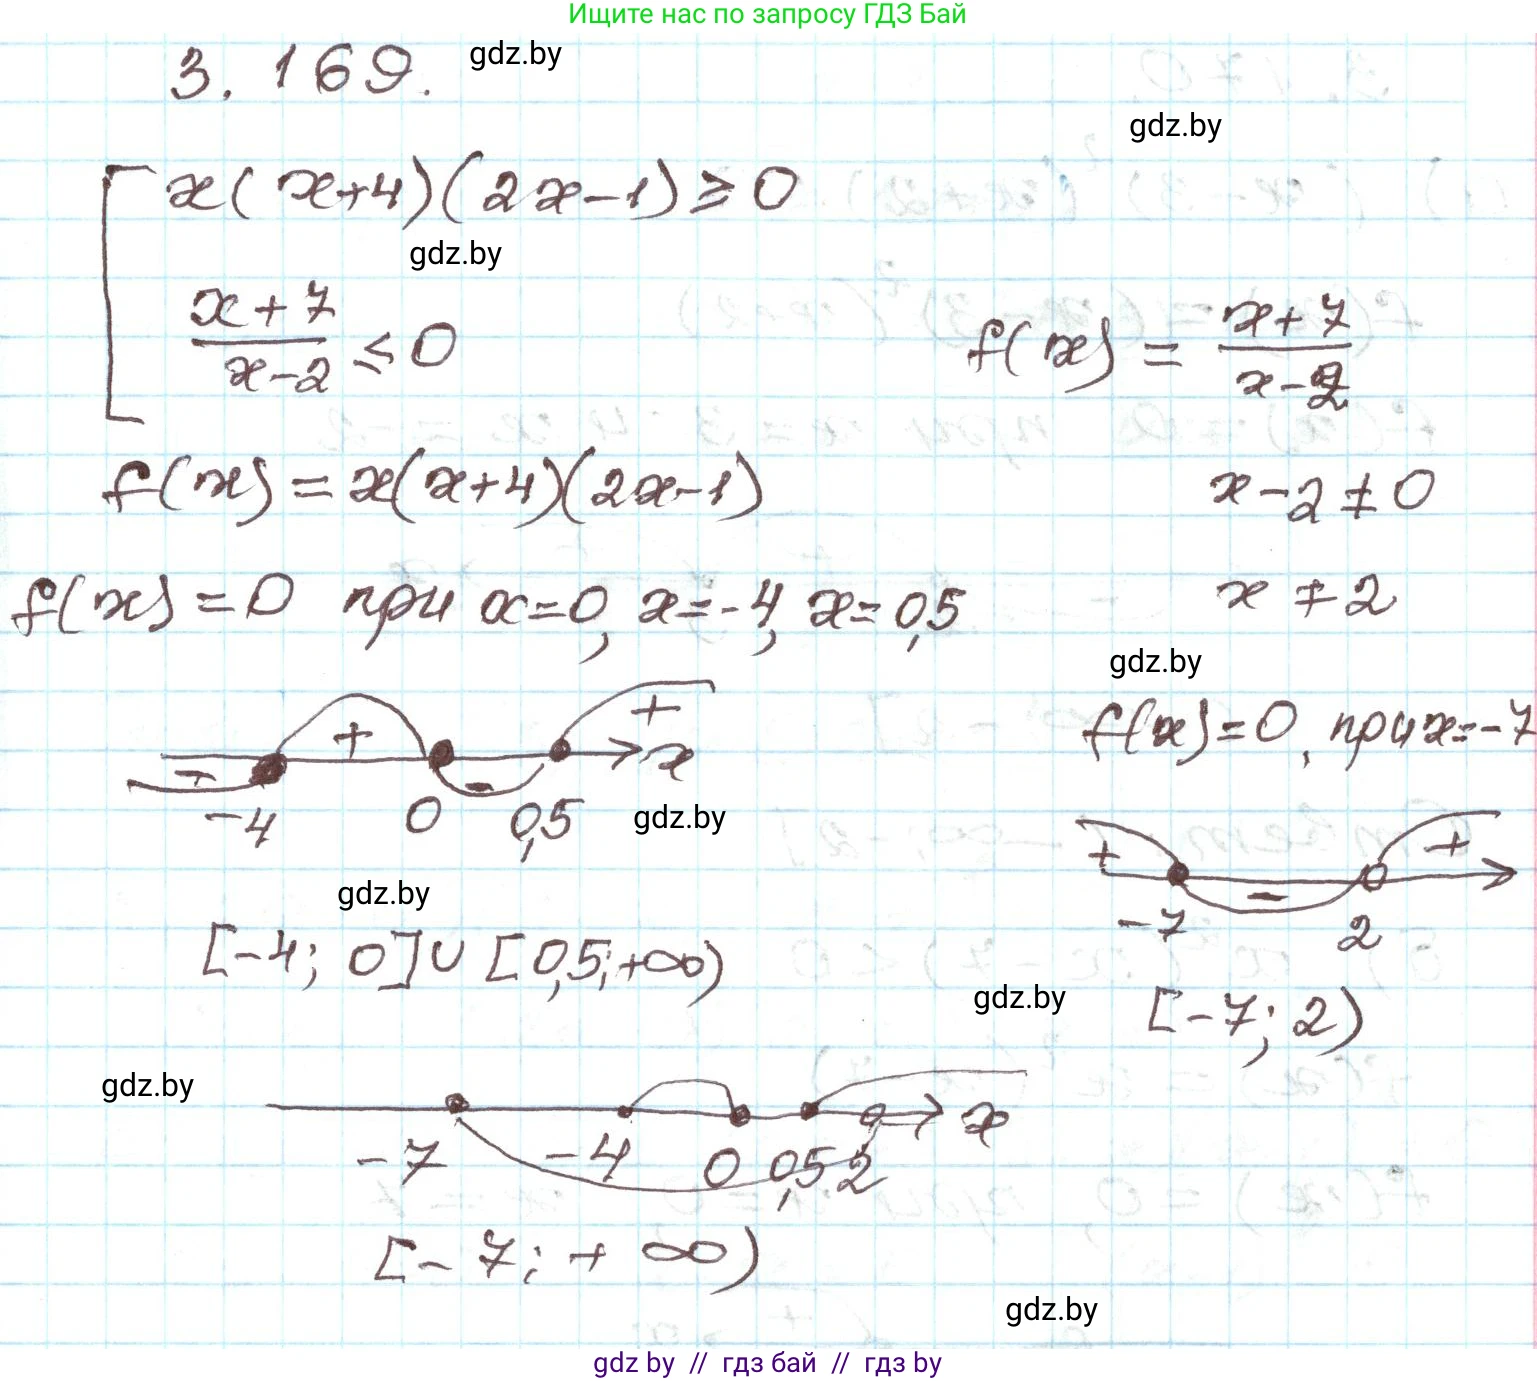 Ищите нас по запросу ГДЗ Бай
3. 169.
gdz.by
gdz.by
x(x+4)(2x-1)≥0
gdz.by
x+7
x-2 ≤0
f(x) = x+7
x-2
f(x)=x(x+4)(2x-1)
x-2≠0
f(x)=0 при x=0, x=-4, x=0,5
x≠2
gdz.by
+ + x
-
-
-4 0 0,5
gdz.by
f(x)=0, при x=-7
+ +
-
-7 2
gdz.by
[-4; 0]∪[0,5;+∞)
gdz.by
[-7; 2)
gdz.by
x
-7 -4 0 0,5 2
[-7; +∞)
gdz.by
gdz by // гдз бай // гдз by